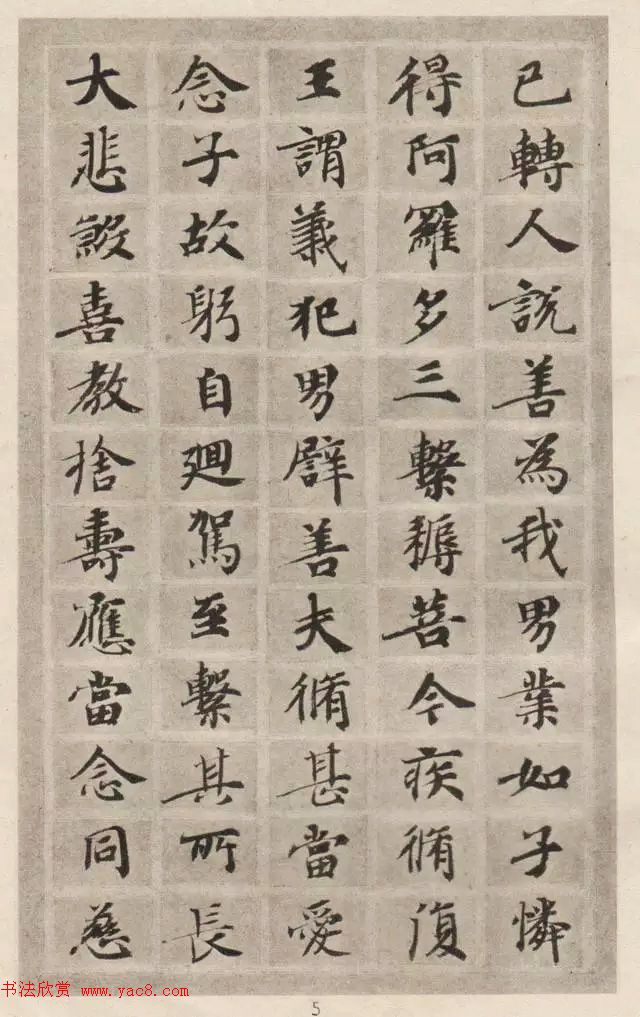 已轉人說善為我男業如子憐
得阿羅多三繫耨菩今疾脩復
王謂義犯男善夫脩甚當愛
念子故躬自廻駕至繫其所長
大悲殺喜教捨壽應當念同慈
书法欣赏 www.yac8.com
5